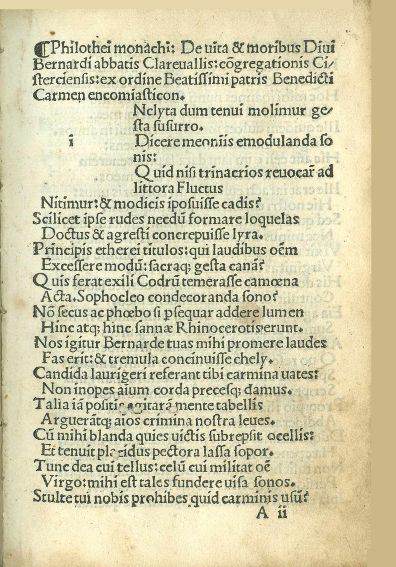 ¶Philothei monachi: De uita & moribus Diui
Bernardi abbatis Clareuallis: cōgregationis Ci/
sterciensis: ex ordine Beatissimi patris Benedicti
Carmen encomiasticon.
Nclyta dum tenui molimur ge/
sta susurro.
i Dicere meoniis emodulanda so
nis:
Quid nisi trinacrios reuocar ad
littora Fluctus
Nitimur: & modicis iposuisse cadis?
Scilicet ipse rudes necdū formare loquelas
Doctus & agresti concrepuisse lyra.
Principis etherei titulos: qui laudibus oēm
Excessere modū: sacraq; gesta canā?
Quis ferat exili Codrū temerasse camœna
Acta. Sophocleo condecoranda sono?
Nō secus ac phœbo si p̄sequar addere lumen
Hinc atq; hinc sannæ Rhinocerotis erunt.
Nos igitur Bernarde tuas mihi promere laudes
Fas erit: & tremula concinuisse chely.
Candida laurigeri referant tibi carmina uates:
Non inopes aium corda precesq; damus.
Talia iā positis agitarā mente tabellis
Arguerātq; aīos crimina nostra leues.
Cū mihi blanda quies uictis subrepsit ocellis:
Et tenuit placidus pectora lassa sopor.
Tunc dea cui tellus: celū cui militat oē
Virgo: mihi est tales fundere uisa sonos.
Stulte tui nobis prohibes quid carminis usū?
A ii